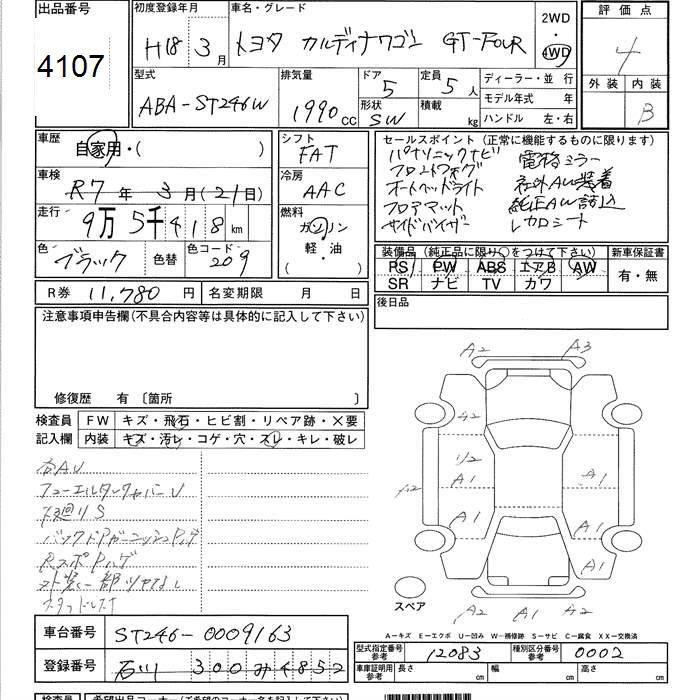 出品番号
4107
初度登録年月
H18 3月
車名・グレード
トヨタ カルディナワゴン GT-FOUR
2WD
・
4WD
評価点
4
外装 内装
B
型式
ABA-ST246W
排気量
1990 CC
ドア
5
形状
SW
定員
5人
積載
kg
ディーラー・並行
モデル年式 年
ハンドル 左・右
車歴
自家用・( )
車検
R7年 3月(21日)
走行
9万5千418 km
色
ブラック
色替
色コード
209
シフト
FAT
冷房
AAC
燃料
ガソリン
軽・油
( )
セールスポイント(正常に機能するものに限ります)
パナソニックナビ 電格ミラー
フロントフォグ 社外AW装着
オートヘッドライト 純正AW積込
フロアマット レカロシート
サイドバイザー
装備品(純正品に限り○をつけて下さい)
PS PW ABS エアB AW
SR ナビ TV カワ
新車保証書
有・無
R券 11,780円
名変期限 月 日
後日品
注意事項申告欄(不具合内容等は具体的に記入して下さい)
修復歴 有〔箇所 〕
検査員
記入欄
FW キズ・飛石・ヒビ割・リペア跡・×要
内装 キズ・汚レ・コゲ・穴・スレ・キレ・破レ
下廻りS
バックドアガーニッシュPハゲ
RスポPハゲ
外装一部ツヤなし
スタッドレス
A2 A3
A2
A2
A1 A1
A2
A1 A1
A1 A1
A2 A1 A2
スペア
A-キズ E-エクボ U-凹み W-補修跡 S-サビ C-腐食 XX-交換済
車台番号
ST246-0009163
登録番号
石川 300 み 4852
型式指定番号
参考
12083
種別区分番号
参考
0002
車庫証明用
参考
長さ cm 幅 cm 高さ cm